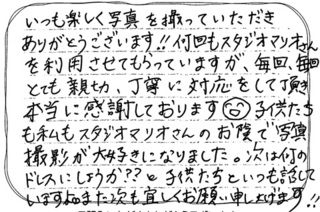 いつも楽しく写真を撮っていただき
ありがとうございます!!何回もスタジオマリオさん
を利用させてもらっていますが、毎回、毎回
とても親切、丁寧に対応をして頂き
本当に感謝しております☺子供たち
も私もスタジオマリオさんのお陰で写真
撮影が大好きになりました。次は何の
ドレスにしようか??と子供たちといつも話して
いますよ。また次も宜しくお願い申し上げます!!